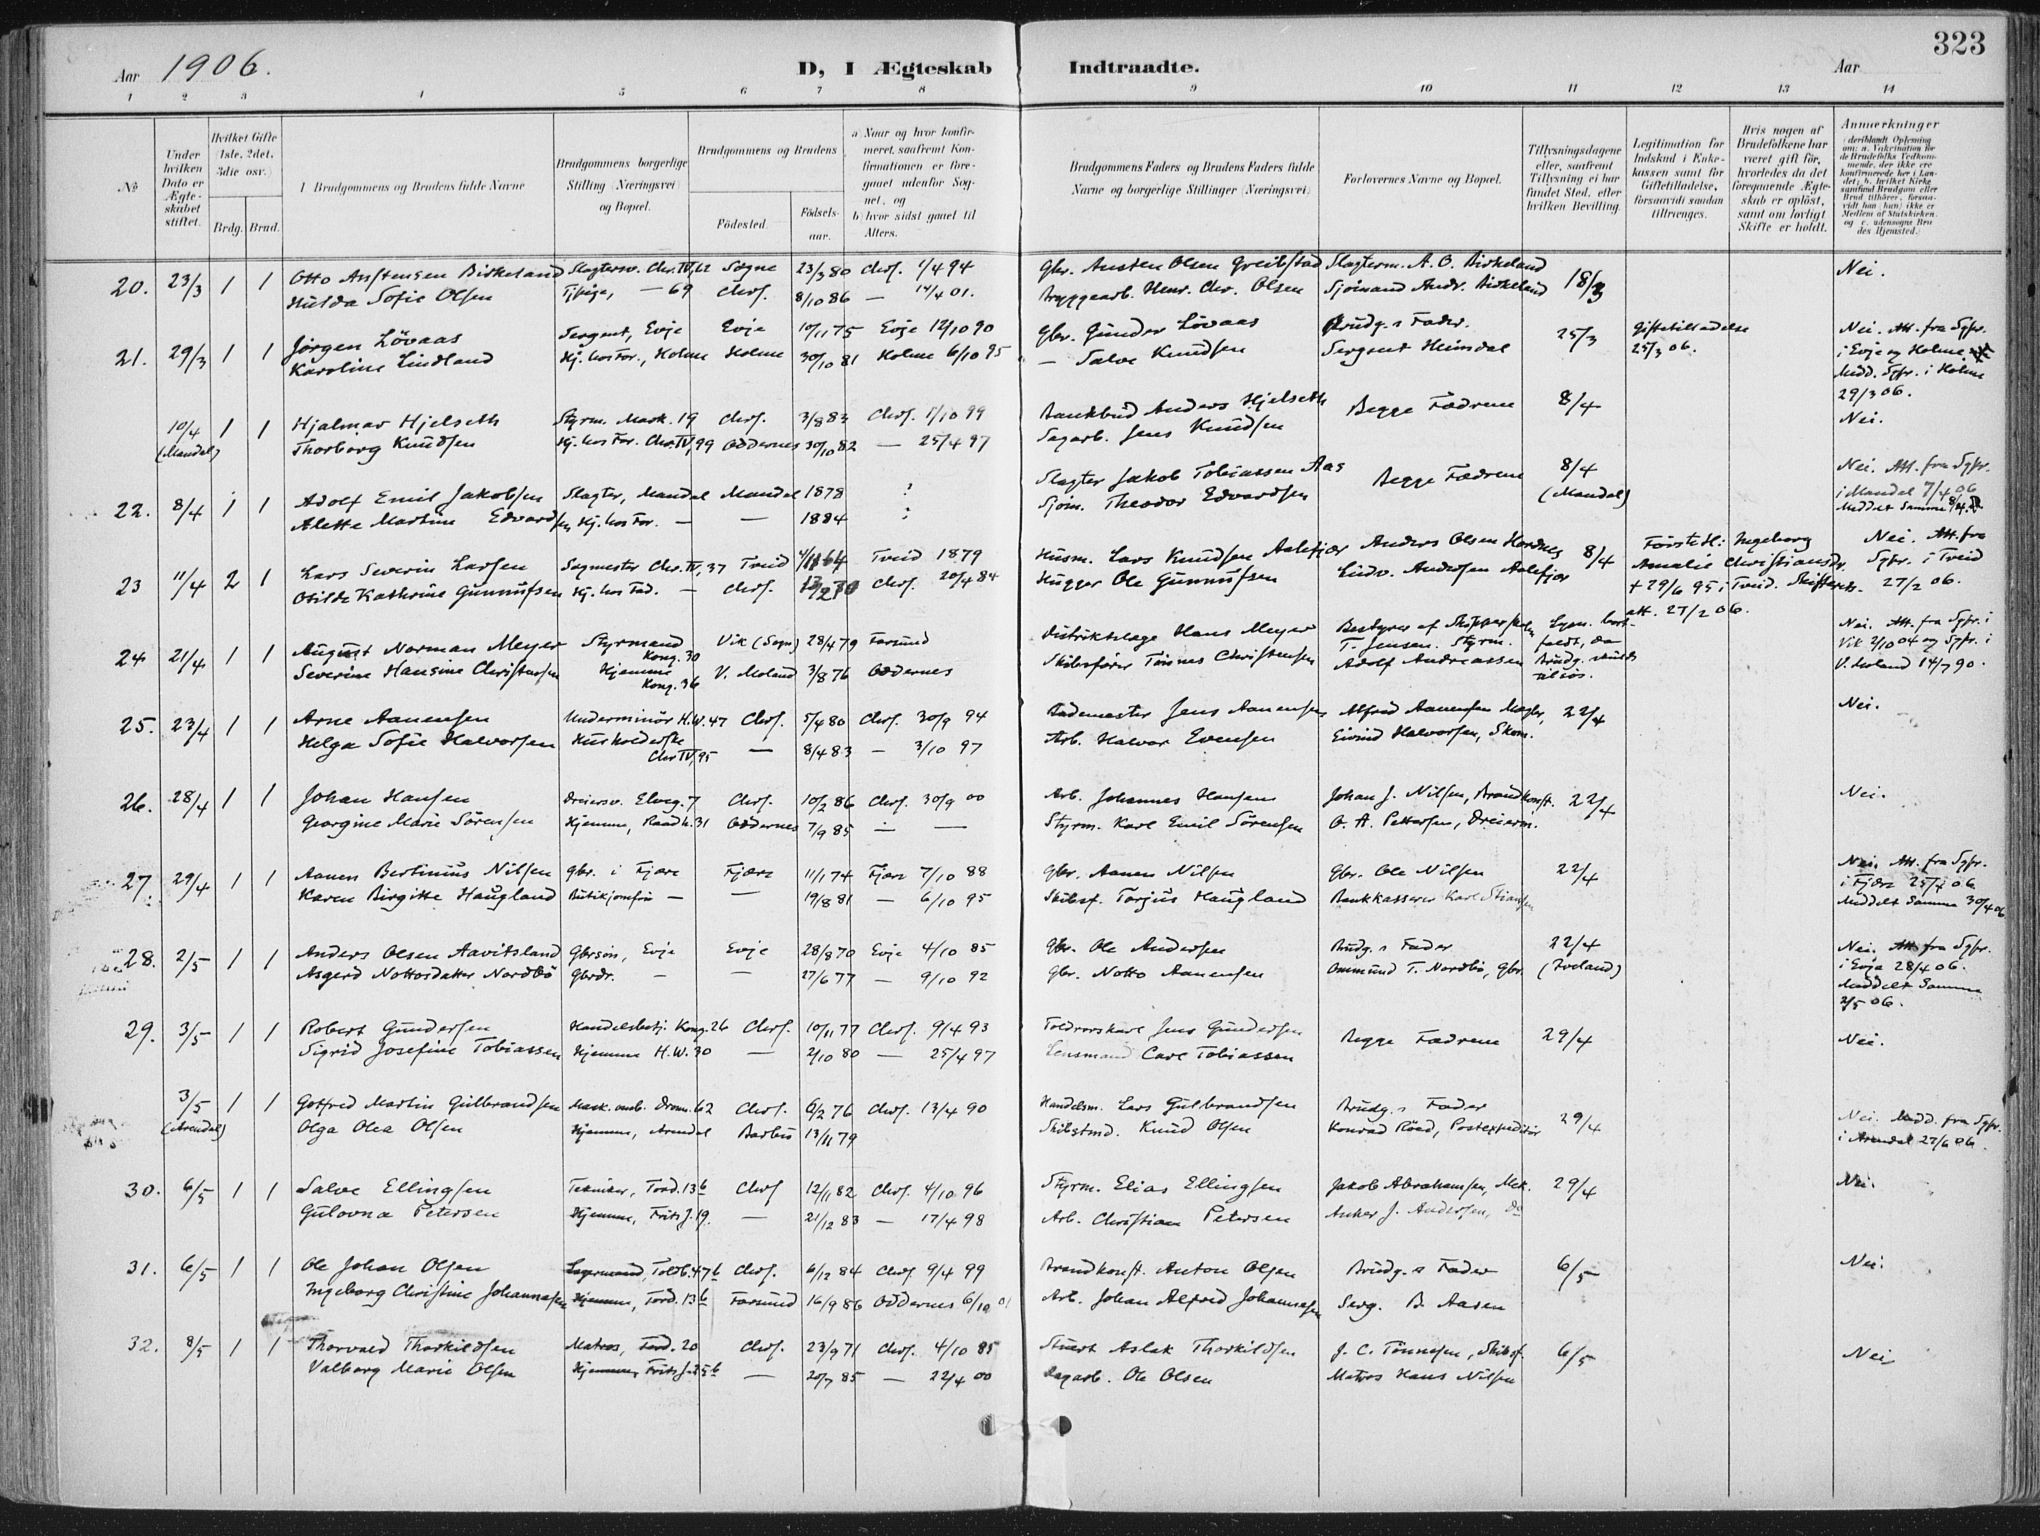 Aar 1906.
D, I Ægteskab Indtraadte.
Aar
323
1 2 3 4 5 6 7 8 9 10 11 12 13 14
No
Under hvilken Dato er Ægteskabet stiftet.
Hvilket Gifte (1ste, 2det, 3die osv.)
Brdg. Brud.
Brudgommens og Brudens fulde Navne
Brudgommens borgerlige Stilling (Næringsvei) og Bopæl.
Brudgommens og Brudens
Födested. Födselsaar.
a) Naar og hvor konfirmeret, saafremt Konfirmationen er foregaaet udenfor Sognet, og
b) hvor sidst gaaet til Alters.
Brudgommens Faders og Brudens Faders fulde Navne og borgerlige Stillinger (Næringsvei)
Forlovernes Navne og Bopæl.
Tillysningsdagene eller, saafremt Tillysning ei har fundet Sted, efter hvilken Bevilling.
Legitimation for Indskud i Enkekassen samt for Giftetilladelse, forsaavidt saadan tiltrænges.
Hvis nogen af Brudefolkene har været gift før, hvorledes da det foregaaende Ægteskab er oplöst, samt om lovligt Skifte er holdt.
Anmærkninger
20. 23/3 1 1 Otto Anstensen Birkeland Slagtersv. Chr. IV, 62 Søgne 23/3 80 Chrs. 1/4 94 Gbr. Austen Olsen Greibstad Slagterm. A. O. Birkeland 18/3 Nei.
Hulda Sofie Olsen Tjpige, — 69 Chrs. 8/10 86 — 14/4 01. Bryggearb. Henr. Chr. Olsen Sjömand Andr. Birkeland
21. 29/3 1 1 Jörgen Lövaas Sergent, Evje Evje 10/11 75 Evje 12/10 90 Gbr. Gunder Lövaas Brudg.s Fader. 25/3 Giftetilladelse 25/3 06. Nei. Att. fra Sgpr.
Karoline Lindland Hj. hos For., Holme Holme 30/10 81 Holme 6/10 95 — Salve Knudsen Sergent Heimdal i Evje og Holme.
Medd. Sgpr. i Holme
29/3 06.
10/4 1 1 Hjalmar Hjelseth Styrm. Mark. 19 Chrs. 3/8 83 Chrs. 1/10 99 Bankbud Anders Hjelseth Begge Fædrene 8/4 Nei.
(Mandal) Thorborg Knudsen Hj. hos For. Chr. IV, 99 Oddernes 30/10 82 — 25/4 97 Sagarb. Jens Knudsen
22. 8/4 1 1 Adolf Emil Jakobsen Slagter, Mandal Mandal 1878 ? Slagter Jakob Tobiassen Aas Begge Fædrene 8/4 Nei. Att. fra Sgpr.
Alette Martine Edvardsen Hj. hos For. — — 1884 ? Sjöm. Theodor Edvardsen (Mandal) i Mandal 7/4 06
Meddelt Samme
23 11/4 2 1 Lars Severin Larsen Sagmester Chr. IV, 37 Tveid 64 Tveid 1879 Husm. Lars Knudsen Aalefjær Anders Olsen 8/4 Første H: Ingeborg Nei. Att. fra
Otilde Kathrine Gunnufsen Hj. hos Fad. — Chrs. Chrs. 20/4 84 Hugger Ole Gunnufsen Ludv. Andersen Aalefjær Amalie Christiansdr. Sgpr. i Tveid
+ 29/6 95 i Tveid. Skifte 27/2 06.
att. 27/2 06.
24 21/4 1 1 August Norman Meyer Styrmand Kong. 30 Vik (Sogn) 28/4 79 Farsund Distriktslæge Hans Meyer Bestyrer af Skipperskolen Lysn. bortfaldt, da Nei. Att. fra Sgpr. i
T. Jensen. Styrm. Brudg. skulde Vik 2/10 04 og Sgpr. i
Severine Hansine Christensen Hjemme Kong. 36 V. Moland 3/8 76 Oddernes Skibsfører Tönnes Christensen Adolf Andreassen tilsös. V. Moland 14/7 90.
25. 23/4 1 1 Arne Aanensen Underminör H.W. 47 Chrs. 5/4 80 Chrs. 30/9 94 Bademester Jens Aanensen Alfred Aanensen Mægler, 22/4 Nei.
Helga Sofie Halvorsen Husholderske Chr IV, 95 — 8/4 83 — 3/10 97 Arb. Halvor Evensen Eivind Halvorsen, Skom.
26. 28/4 1 1 Johan Hansen Dreiersv. Elveg. 7 Chrs. 10/2 86 Chrs. 30/9 00 Arb. Johannes Hansen Johan J. Nilsen, Brandkonst. 22/4 Nei.
Georgine Marie Sörensen Hjemme, Raadh. 31 Oddernes 7/9 85 — — Styrm. Karl Emil Sörensen O. A. Pettersen, Dreierm.
27 29/4 1 1 Aanen Bertinius Nilsen Gbr. i Fjære Fjære 11/1 74 Fjære 7/10 88 Gbr. Aanen Nilsen Gbr. Ole Nilsen 22/4 Nei. Att. fra Sgpr.
Karen Birgitte Haugland Butikjomfru — — 19/8 81 — 6/10 95 Skibsf. Torjus Haugland Bankkasserer Karl Stiansen i Fjære 25/4 06
Meddelt Samme 30/4 06
28. 2/5 1 1 Anders Olsen Aavitsland Gbrsön, Evje Evje 28/8 70 Evje 4/10 85 Gbr. Ole Andersen Brudg.s Fader 22/4 Nei. Att. fra Sgpr.
Asgerd Nottosdatter Nordbö Gbrdr. — — 27/6 77 — 9/10 92 Gbr. Notto Aanensen Ommund T. Nordbö, Gbr. (Iveland) i Evje 28/4 06.
Meddelt Samme
2/5 06.
29. 3/5 1 1 Robert Gundersen Handelsbetj. Kong. 26 Chrs. 10/11 77 Chrs. 9/4 93 Toldrorskarl Jens Gundersen Begge Fædrene 29/4 Nei.
Sigrid Josefine Tobiassen Hjemme H.W. 30 — 2/10 80 — 25/4 97 Lensmand Carl Tobiassen
3/5 1 1 Gotfred Martin Gulbrandsen Mask. omb. Dronn. 62 Chrs. 6/2 76 Chrs. 13/4 90 Handelsm. Lars Gulbrandsen Brudg.s Fader 29/4 Nei. Medd. fra Sgpr.
(Arendal) Olga Olea Olsen Hjemme, Arendal Barbu 13/11 79 Skibstmd. Knud Olsen Konrad Röed, Postexpeditör i Arendal 27/6 06.
30. 6/5 1 1 Salve Ellingsen Tekniker, Tord. 13b Chrs 12/1 82 Chrs. 4/10 96 Styrm. Elias Ellingsen Jakob Abrahamsen, Mek. 29/4 Nei.
Gulovna Petersen Hjemme, Frits J. 19. — 21/12 83 — 17/4 98 Arb. Christian Petersen Anker J. Andersen, Do
31. 6/5 1 1 Ole Johan Olsen Lagermand, Toldb. 47b Chrs. 6/12 84 Chrs. 9/4 99 Brandkonst. Anton Olsen Brudg.s Fader 6/5 Nei.
Ingeborg Christine Johannesen Hjemme, Tord. 13b Farsund 16/9 86 Oddernes 6/10 01 Arb. Johan Alfred Johannesen Serg. B. Aasen
32. 8/5 1 1 Thorvald Thorkildsen Matros, Tord. 20 Chrs. 23/9 71 Chrs. 4/10 85 Stuert Aslak Thorkildsen J. C. Tönnesen, Skibsf. 6/5 Nei
Valborg Marie Olsen Hjemme, Frits J. 25b — 20/7 85 — 22/4 00 Sagarb. Ole Olsen Matros Hans Nilsen